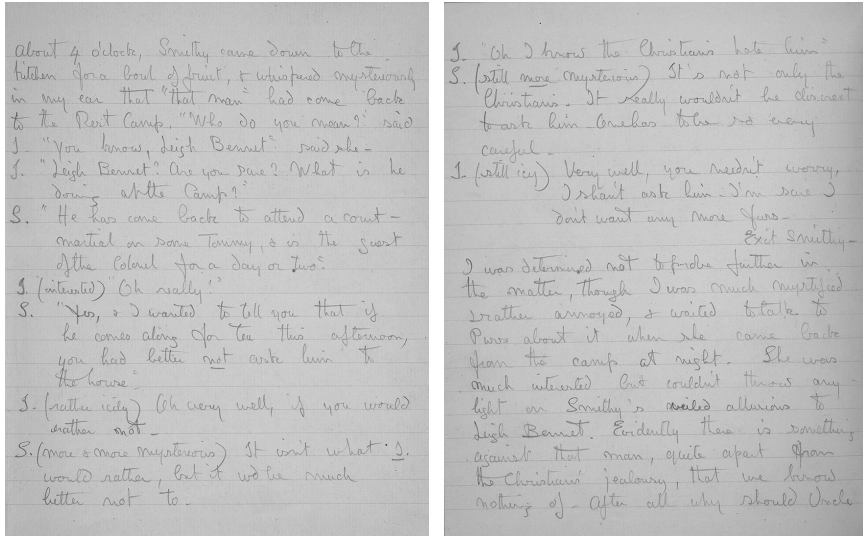 about 4 o'clock, Smithy came down to the
kitchen for a bowl of fruit, & whispered mysteriously
in my ear that "that man" had come back
to the Rest Camp. "Who do you mean?" said
I. "You know, Leigh Bennet" said she –
I. "Leigh Bennet? Are you sure? What is he
doing at the Camp?"
S. "He has come back to attend a court –
martial on some Tommy, & is the guest
of the Colonel for a day or two".
I. (interested) "Oh really!"
S. "Yes, & I wanted to tell you that if
he comes along for tea this afternoon,
you had better not ask him to
the house".
I. (rather icily) Oh very well, if you would
rather not –
S. (more & more mysterious) It isn't what I
would rather, but it wd be much
better not to –
I. "Oh I know the Christians hate him"
S. (still more mysterious) It's not only the
Christians. It really wouldn't be discreet
to ask him – One has to be so very
careful –
I. (still icy) Very well, you needn't worry,
I shan't ask him – I'm sure I
don't want any more
Exit Smithy –
I was determined not to probe further in
the matter, though I was much mystified
& rather annoyed, & waited to talk to
about it when she came back
from the camp at night. She was
much interested but couldn't throw any
light on Smithy's veiled allusions to
Leigh Bennet. Evidently there is something
against that man, quite apart from
the Christians' jealousy, that we know
nothing of – After all why should Uncle